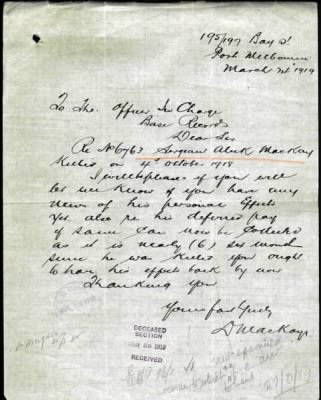 195/197 Bay St
Port Melbourne
March 1919
To The Officer In Charge
Base Records
Dear Sir
Re No 6763 Sergeant Aleck MacKay
Killed on 4th October 1918
if you will
let me know if you have any
news of his personal effects
Yes also re his deferred pay
if same can now be collected
as it is nearly (6) six months
since he was killed you ought
to have his effects back by now
Thanking you
Yours faithfully
D MacKay
DECEASED
SECTION
RECEIVED